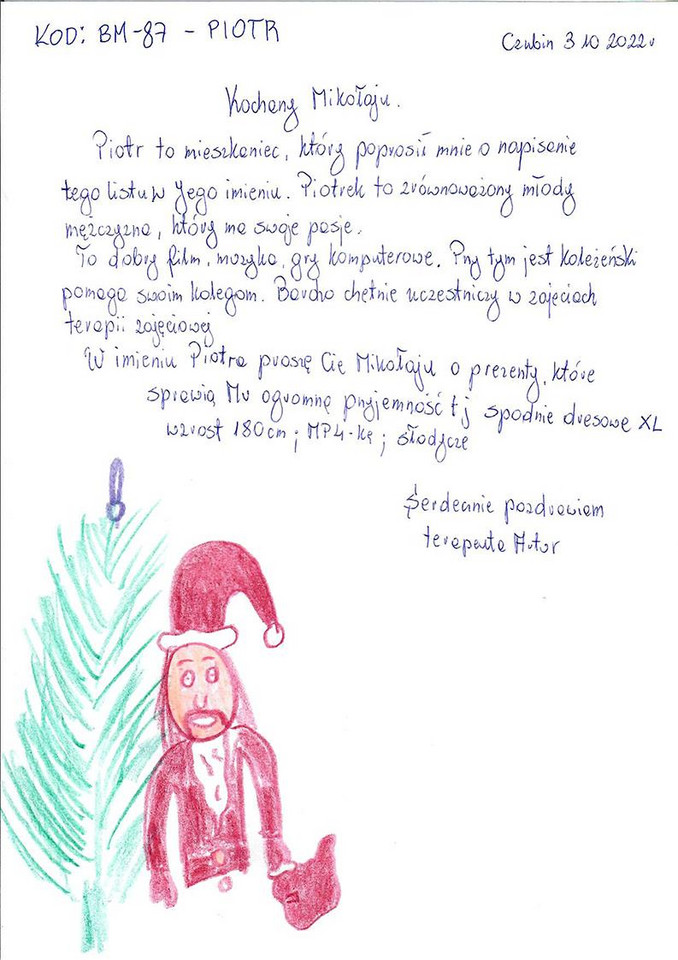 KOD: BM-87 - PIOTR
Czubin 3 10 2022r
Kochany Mikołaju.
Piotr to mieszkaniec, który poprosił mnie o napisanie
tego listu w Jego imieniu. Piotrek to zrównoważony młody
mężczyzna, który ma swoje pasje.
To dobry film, muzyka, gry komputerowe. Przy tym jest koleżeński
pomaga swoim kolegom. Bardzo chętnie uczestniczy w zajęciach
terapii zajęciowej
W imieniu Piotra proszę Cię Mikołaju o prezenty, które
sprawią Mu ogromną przyjemność tj spodnie dresowe XL
wzrost 180cm ; MP4-kę ; słodycze
Serdecznie pozdrawiam
terapeuta Artur